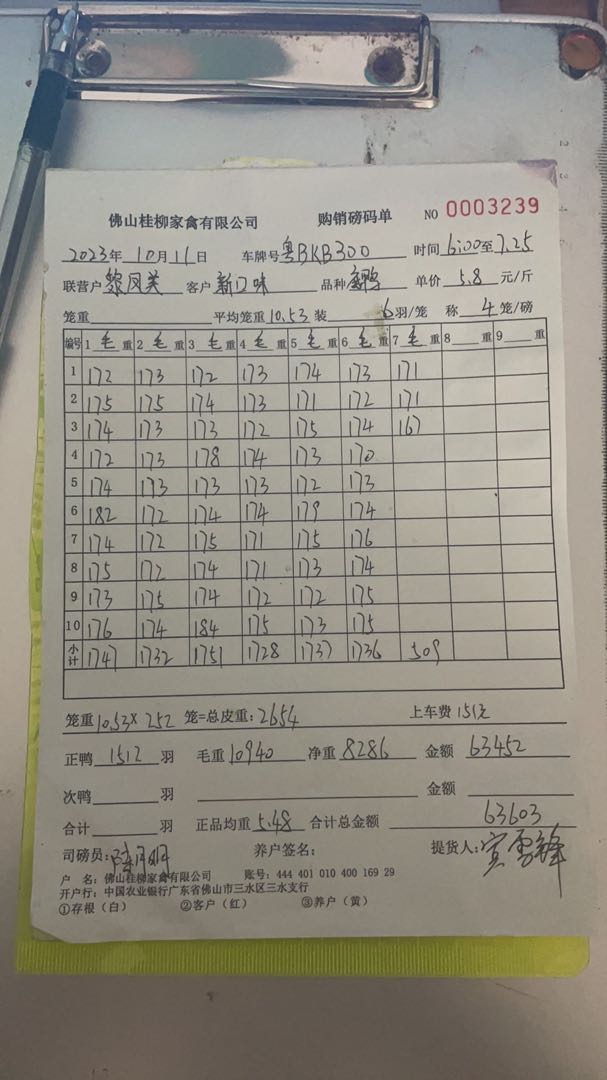 佛山桂柳家禽有限公司 购销磅码单 NO 0003239
2023年 10月 11日 车牌号 粤BKB300 时间 6:00至7.25
联营户 黎凤美 客户 新口味 品种 鸭 单价 5.8 元/斤
笼重 平均笼重 10.53 装 6羽/笼 称 4 笼/磅
编号 1 毛 重 2 毛 重 3 毛 重 4 毛 重 5 毛 重 6 毛 重 7 毛 重 8 重 9 重
1 172 173 172 173 174 173 171
2 175 175 174 173 171 172 171
3 174 173 173 172 175 174 167
4 172 173 178 174 173 170
5 174 173 173 173 172 173
6 182 172 174 174 179 174
7 174 172 175 171 175 176
8 175 172 174 171 173 174
9 173 175 174 172 172 175
10 176 174 184 175 173 175
小计 1747 1732 1751 1728 1737 1736 509
笼重 10.53 × 252 笼=总皮重: 2654 上车费 151元
正鸭 1512 羽 毛重 10940 净重 8286 金额 63452
次鸭 羽 金额
合计 羽 正品均重 5.48 合计总金额 63603
司磅员: 养户签名: 提货人:
户 名: 佛山桂柳家禽有限公司 账号: 444 401 010 400 169 29
开户行: 中国农业银行广东省佛山市三水区三水支行
①存根（白） ②客户（红） ③养户（黄）